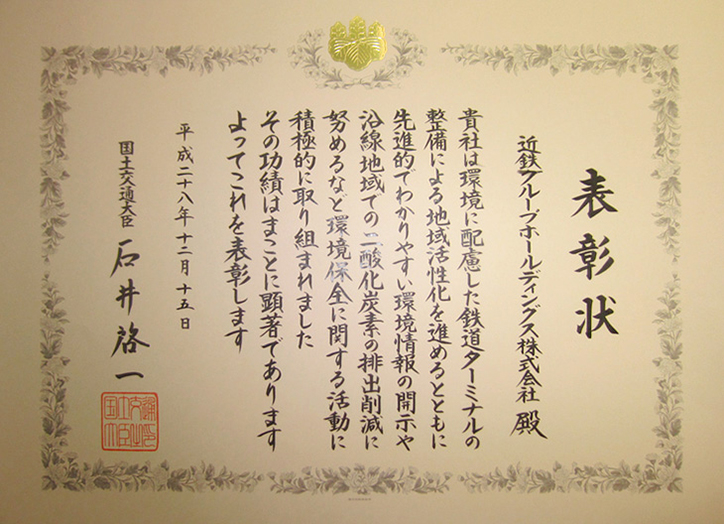 表彰状
近鉄グループホールディングス株式会社 殿
貴社は環境に配慮した鉄道ターミナルの
整備による地域活性化を進めるとともに
先進的でわかりやすい環境情報の開示や
沿線地域での二酸化炭素の排出削減に
努めるなど環境保全に関する活動に
積極的に取り組まれました
その功績はまことに顕著であります
よってこれを表彰します
平成二十八年十二月十五日
国土交通大臣 石井啓一